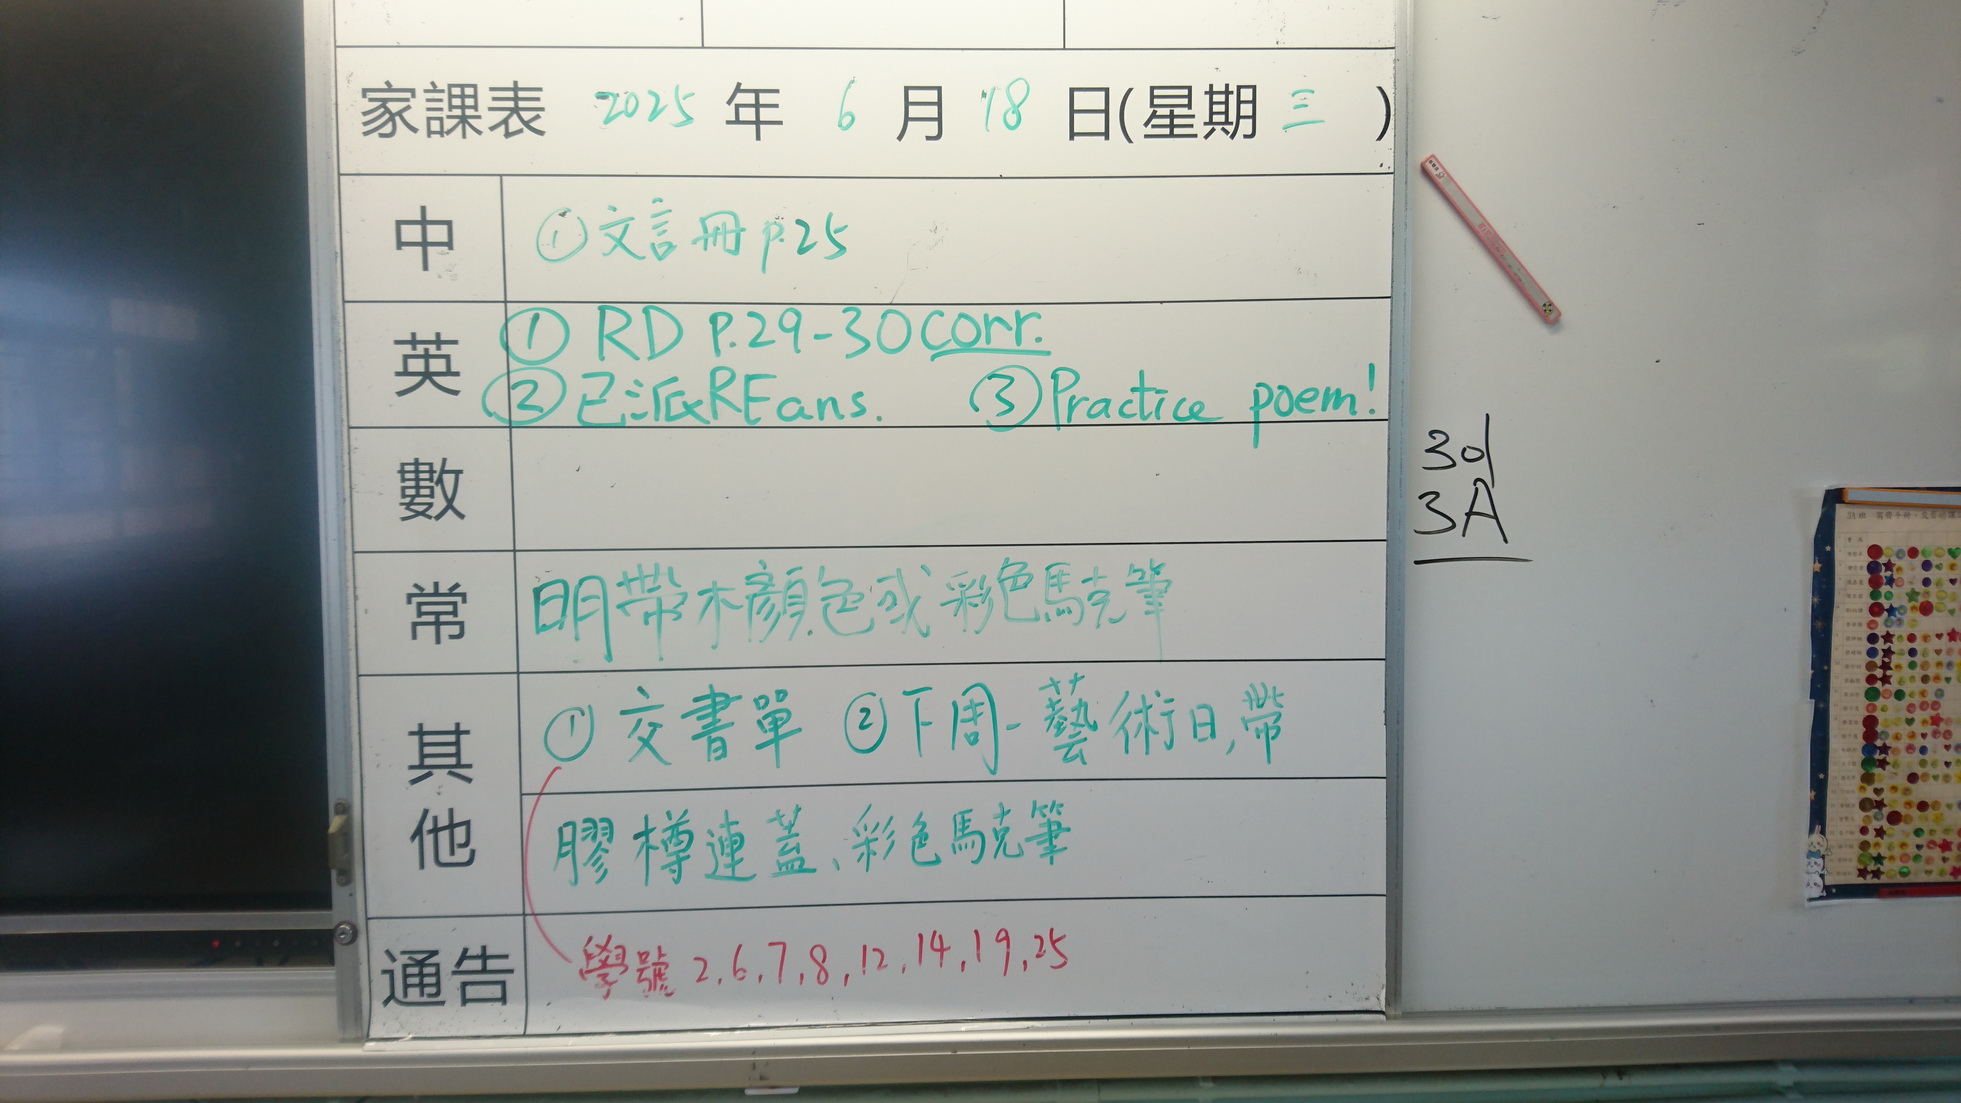 家課表 2025 年 6 月 18 日(星期 三 )
中 ①文言冊 p.25
英 ① RD P.29-30 corr.
② 已派 RE ans. ③ Practice poem!
數
常 明帶木顏色或彩色馬克筆
其他 ① 交書單 ② 下周一藝術日,帶
膠樽連蓋、彩色馬克筆
通告 學號 2,6,7,8,12,14,19,25
3d
3A